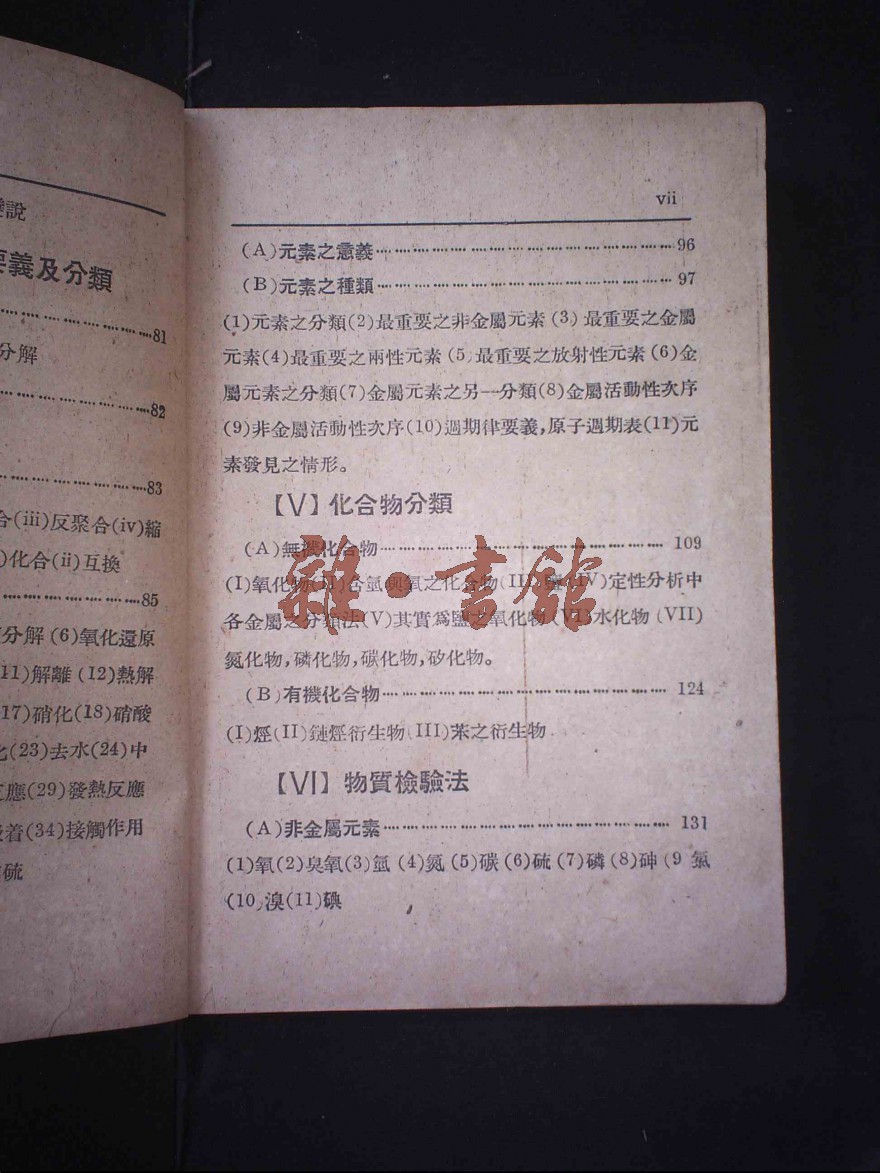 說
義及分類
……………………81
分解
……………………82
……………………83
合(iii)反聚合(iv)縮
)化合(ii)互換
……………………85
分解(6)氧化還原
11)解離(12)熱解
17)硝化(18)硝酸
(23)去水(24)中
應(29)發熱反應
着(34)接觸作用
硫
vii
(A)元素之意義……………………96
(B)元素之種類……………………97
(1)元素之分類(2)最重要之非金屬元素(3)最重要之金屬
元素(4)最重要之兩性元素(5)最重要之放射性元素(6)金
屬元素之分類(7)金屬元素之另一分類(8)金屬活動性次序
(9)非金屬活動性次序(10)週期律要義,原子週期表(11)元
素發見之情形。
【V】化合物分類
(A)無機化合物……………………109
(I)氧化物(II)含氫與氧之化合物(III)鹽(IV)定性分析中
各金屬之分類法(V)其實爲鹽之氧化物(VI)水化物(VII)
氮化物,磷化物,碳化物,矽化物。
(B)有機化合物……………………124
(I)烴(II)鏈烴衍生物(III)苯之衍生物
【VI】物質檢驗法
(A)非金屬元素……………………131
(1)氧(2)臭氧(3)氫(4)氮(5)碳(6)硫(7)磷(8)砷(9氯
(10)溴(11)碘
雜·書館